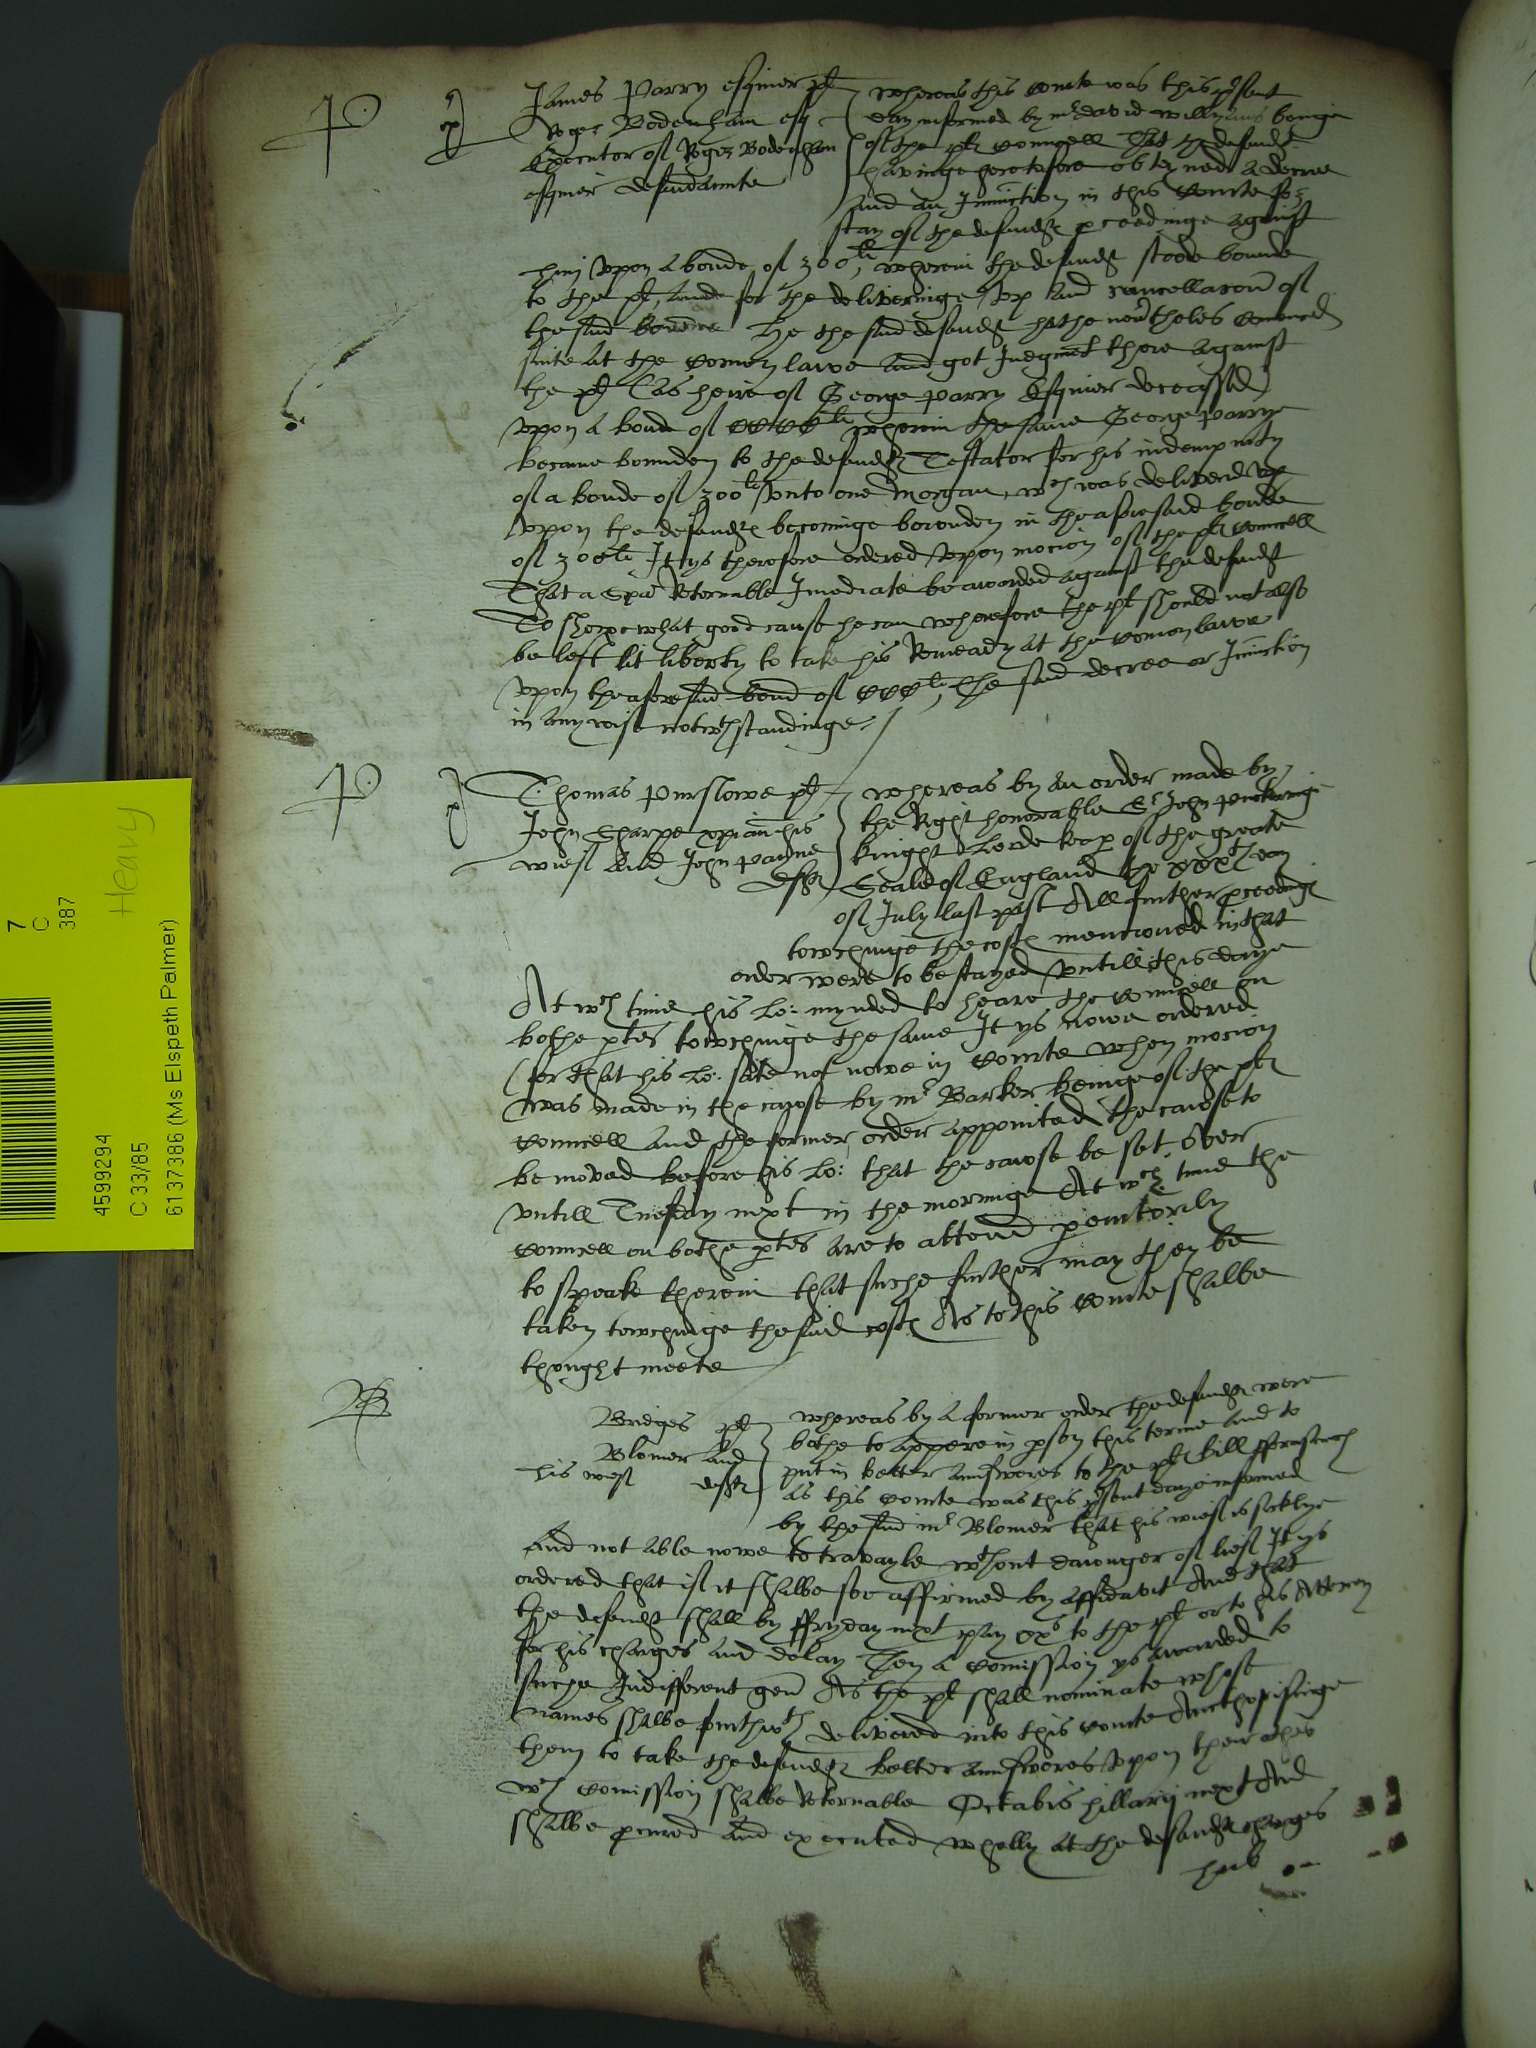 P
James Parry esquier pl
Roger Bodenham esq
Executor of Roger Bodenham
esquier defendaunte
whereas this courte was this present
day informed by mr david willyams beinge
of the pl councell That the defendt
havinge heretofore obteyned a decree
and an Iniunction in this courte for
stay of the defendtes proceedinge against
him upon a bonde of 300li, wherein the defendt stoode bounde
to the pl, and for the deliveringe up and cancellacon of
the said bonde he the said defendt hathe nevertheles comenced
suite at the comon lawe and got Judgmt there against
the pl (as heire of George Parry Esquier deceassed)
upon a bond of wherein the same George Parrye
became bounden to the defendtes Testator for his indempnity
of a bonde of 300li unto one Morgan, wch was delivered up
upon the defendtes becominge bounden in the aforesaid bonde
of 300li It ys therefore ordered upon mocion of the pl councell
That a Spa Retornable Imediate be awarded against the defendt
To shewe what good cause he can wherefore the pl should not also
be left at liberty to take his Remeady at the comon lawe
upon the aforesaid bond of CCCli, the said decree or Iniunction
in any wise notwthstandinge
P
Thomas Purslowe pl
John Sharpe xpian his
wief and John Payne
deftes
whereas by an order made by
the Right honorable Sr John Puckeringe
knight Lorde keeper of the greate
Seale of England the xxxth day
of July last past All further proceedinges
towchinge the costes mencioned in that
order were to be stayed untill this daye
At wch time his Lo: mynded to heare the councell on
bothe ptes towchinge the same It ys nowe ordered
(for that his Lo: sate not nowe in courte when mocion
was made in the cause by mr Barker beinge of the pl
councell and the former order appointed the cause to
be moved before his Lo: that the cause be set over
untill Tuesday next in the morninge At wch time the
councell on bothe ptes are to attend peremtorily
to speake therein that suche further may then be
taken towchinge the said costes As to this courte shalbe
thought meete
B
Bridges pl
Blomer and
his wief deftes
whereas by a former order the defendtes were
bothe to appere in person this terme and to
put in better answeres to the pl bill fforasmuch
as this courte was this present daye informed
by the said mr Blomer that his wief is sicklye
And not able nowe to travayle wthout daunger of lief It ys
ordered that if it shalbe soe affirmed by affidavit And that
the defendt shall by ffryday next pay xxs to the pl or to his Attorney
for his charges and delay Then a comission ys awarded to
suche Indifferent gen As the pl shall nominate whose
names shalbe furthwth delivered into this courte Aucthorisinge
them to take the defendtes better answeres upon their othes
wch comission shalbe Retornable Octabis hillarij next And
shalbe procured and executed wholly at the defendtes charges
7
C
387
Heavy
4599294
C 33/85
6137386 (Ms Elspeth Palmer)